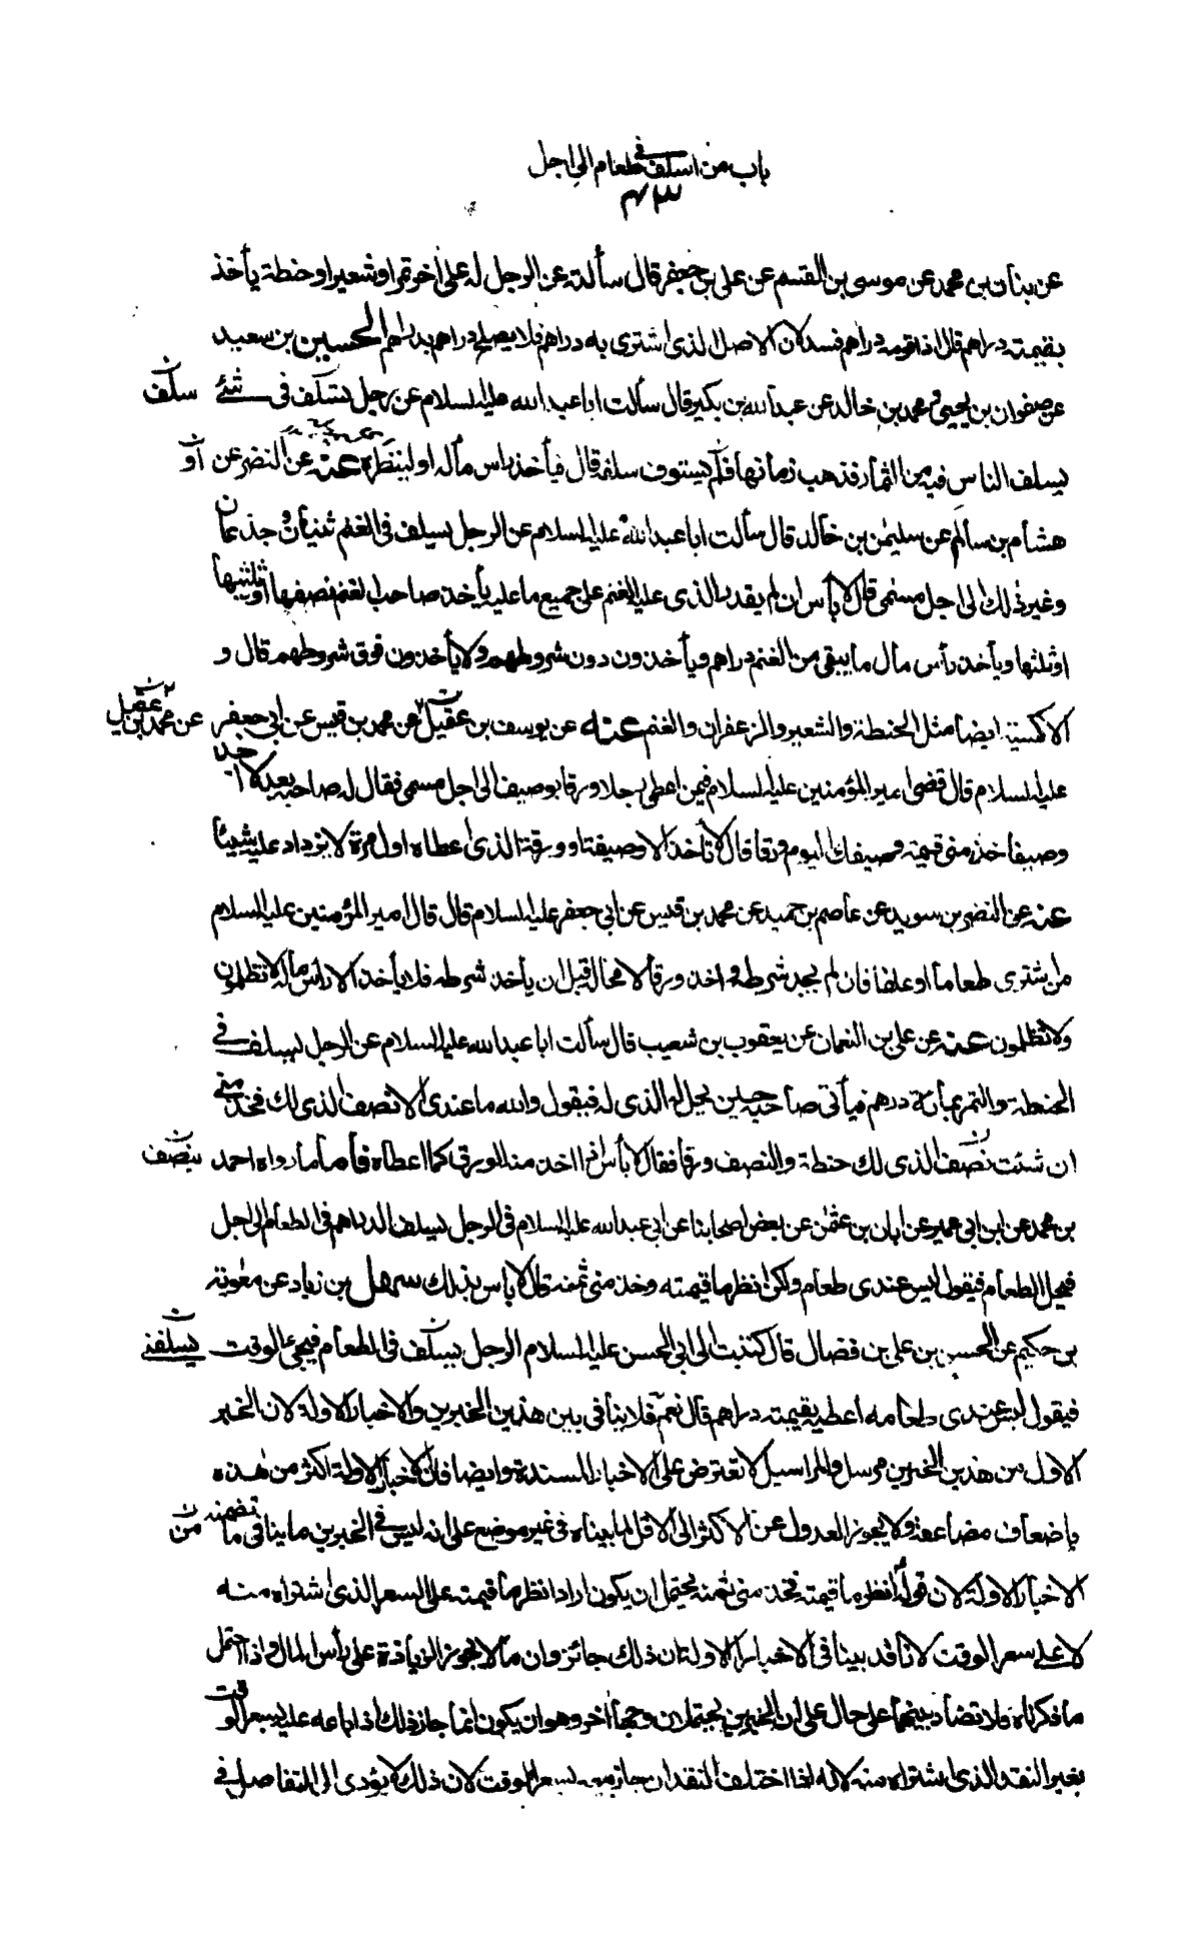 باب من اسلف في طعام الى اجل
٤٣
عن بنان بن محمد عن موسى بن القسم عن علي بن جعفر قال سألته عن الرجل له على اخر تمر او شعير او حنطة يأخذ
بقيمته دراهم قال اذا قومه دراهم فسد لان الاصل الذى اشترى به دراهم فلا يصلح دراهم بدراهم الحسين بن سعيد
عن صفوان بن يحيى و محمد بن خالد عن عبد الله بن بكير قال سألت ابا عبد الله عليه السلام عن رجل يسلف فى شئ
سلف
يسلف الناس فيه من الثمار فذهب زمانها فلم يستوف سلفه قال فيأخذ راس ماله او لينظره عنه عن النضر عن
هشام بن سالم عن سليمن بن خالد قال سألت ابا عبد الله عليه السلام عن الرجل يسلف فى الغنم ثنيان و جذعان
وغير ذلك الى اجل مسمى قال لا بأس ان لم يقدر الذى عليه الغنم على جميع ما عليه يأخذ صاحب الغنم نصفها او ثلثيها
او ثلثها و يأخذ رأس مال ما يبقى من الغنم دراهم و يأخذون دون شروطهم ولا يأخذون فوق شروطهم قال و
الاكسية ايضا مثل الحنطة والشعير والزعفران والغنم عنه عن يوسف بن عقيل عن محمد بن قيس عن ابى جعفر
عليه السلام قال قضى امير المؤمنين عليه السلام فيمن اعطى رجلا ورقا بوصيف الى اجل مسمى فقال له صاحبه بعد لا اجد
وصيفا خذ منى قيمة وصيفك اليوم ورقا قال لا تأخذ الا وصيفه او ورقه الذى اعطاه اول مرة لا يزداد عليه شيئا
عنه عن النضر بن سويد عن عاصم بن حميد عن محمد بن قيس عن ابى جعفر عليه السلام قال قال امير المؤمنين عليه السلام
من اشترى طعاما او علفا فان لم يجد شرطه و اخذ ورقا لا محالة قبل ان يأخذ شرطه فلا يأخذ الا رأس ماله لا تظلمون
ولا تظلمون عنه عن علي بن النعمان عن يعقوب بن شعيب قال سألت ابا عبد الله عليه السلام عن الرجل يسلف فى
الحنطة والتمر بمائة درهم فيأتى صاحبه حين يحل له الذى له فيقول والله ما عندى الا نصف الذى لك فخذ منى
ان شئت نصف الذى لك حنطة والنصف ورقا فقال لا بأس اذا اخذ منه الورق كما اعطاه فأما ما رواه احمد
بنصف
بن محمد عن ابن ابى عمير عن ابان بن عثمن عن بعض اصحابنا عن ابى عبد الله عليه السلام فى الرجل يسلف الدراهم فى الطعام الى اجل
فيحل الطعام فيقول ليس عندى طعام ولكن انظر ما قيمته و خذ منى ثمنه قال لا بأس بذلك سهل بن زياد عن معوية
بن حكيم عن الحسن بن على بن فضال قال كتبت الى ابى الحسن عليه السلام الرجل يسلف فى الطعام فيجئ الوقت
يسلفنى
فيقول ليس عندى طعام اعطيه بقيمته دراهم قال نعم فلا ينافى بين هذين الخبرين والاخبار الاولة لان الخبر
الاول من هذين الخبرين مرسل والمراسيل لا تعترض على الاخبار المسندة وايضا فان الاخبار الاولة اكثر من هذه
باضعاف مضاعفة ولا يجوز العدول عن الاكثر الى الاقل لما بيناه فى غير موضع على انه ليس فى الخبرين ما ينافى ما تضمنته
من
الاخبار الاولة لان قوله انظر ما قيمته فخذ منى ثمنه يحتمل ان يكون اراد انظر ما قيمته على السعر الذى اشتراه منه
لا على سعر الوقت لانا قد بينا فى الاخبار الاولة ان ذلك جائز و ان ما لا يجوز الزيادة على رأس المال واذا احتمل
ما ذكرناه فلا تضاد بينهما على حال على ان الخبرين يحتملان وجها آخر وهو ان يكون انما جاز ذلك اذا باعه عليه بسعر الوقت
بغير النقد الذى اشتراه منه لانه اذا اختلف النقدان جاز بيعه بسعر الوقت لان ذلك لا يؤدى الى التفاضل فى